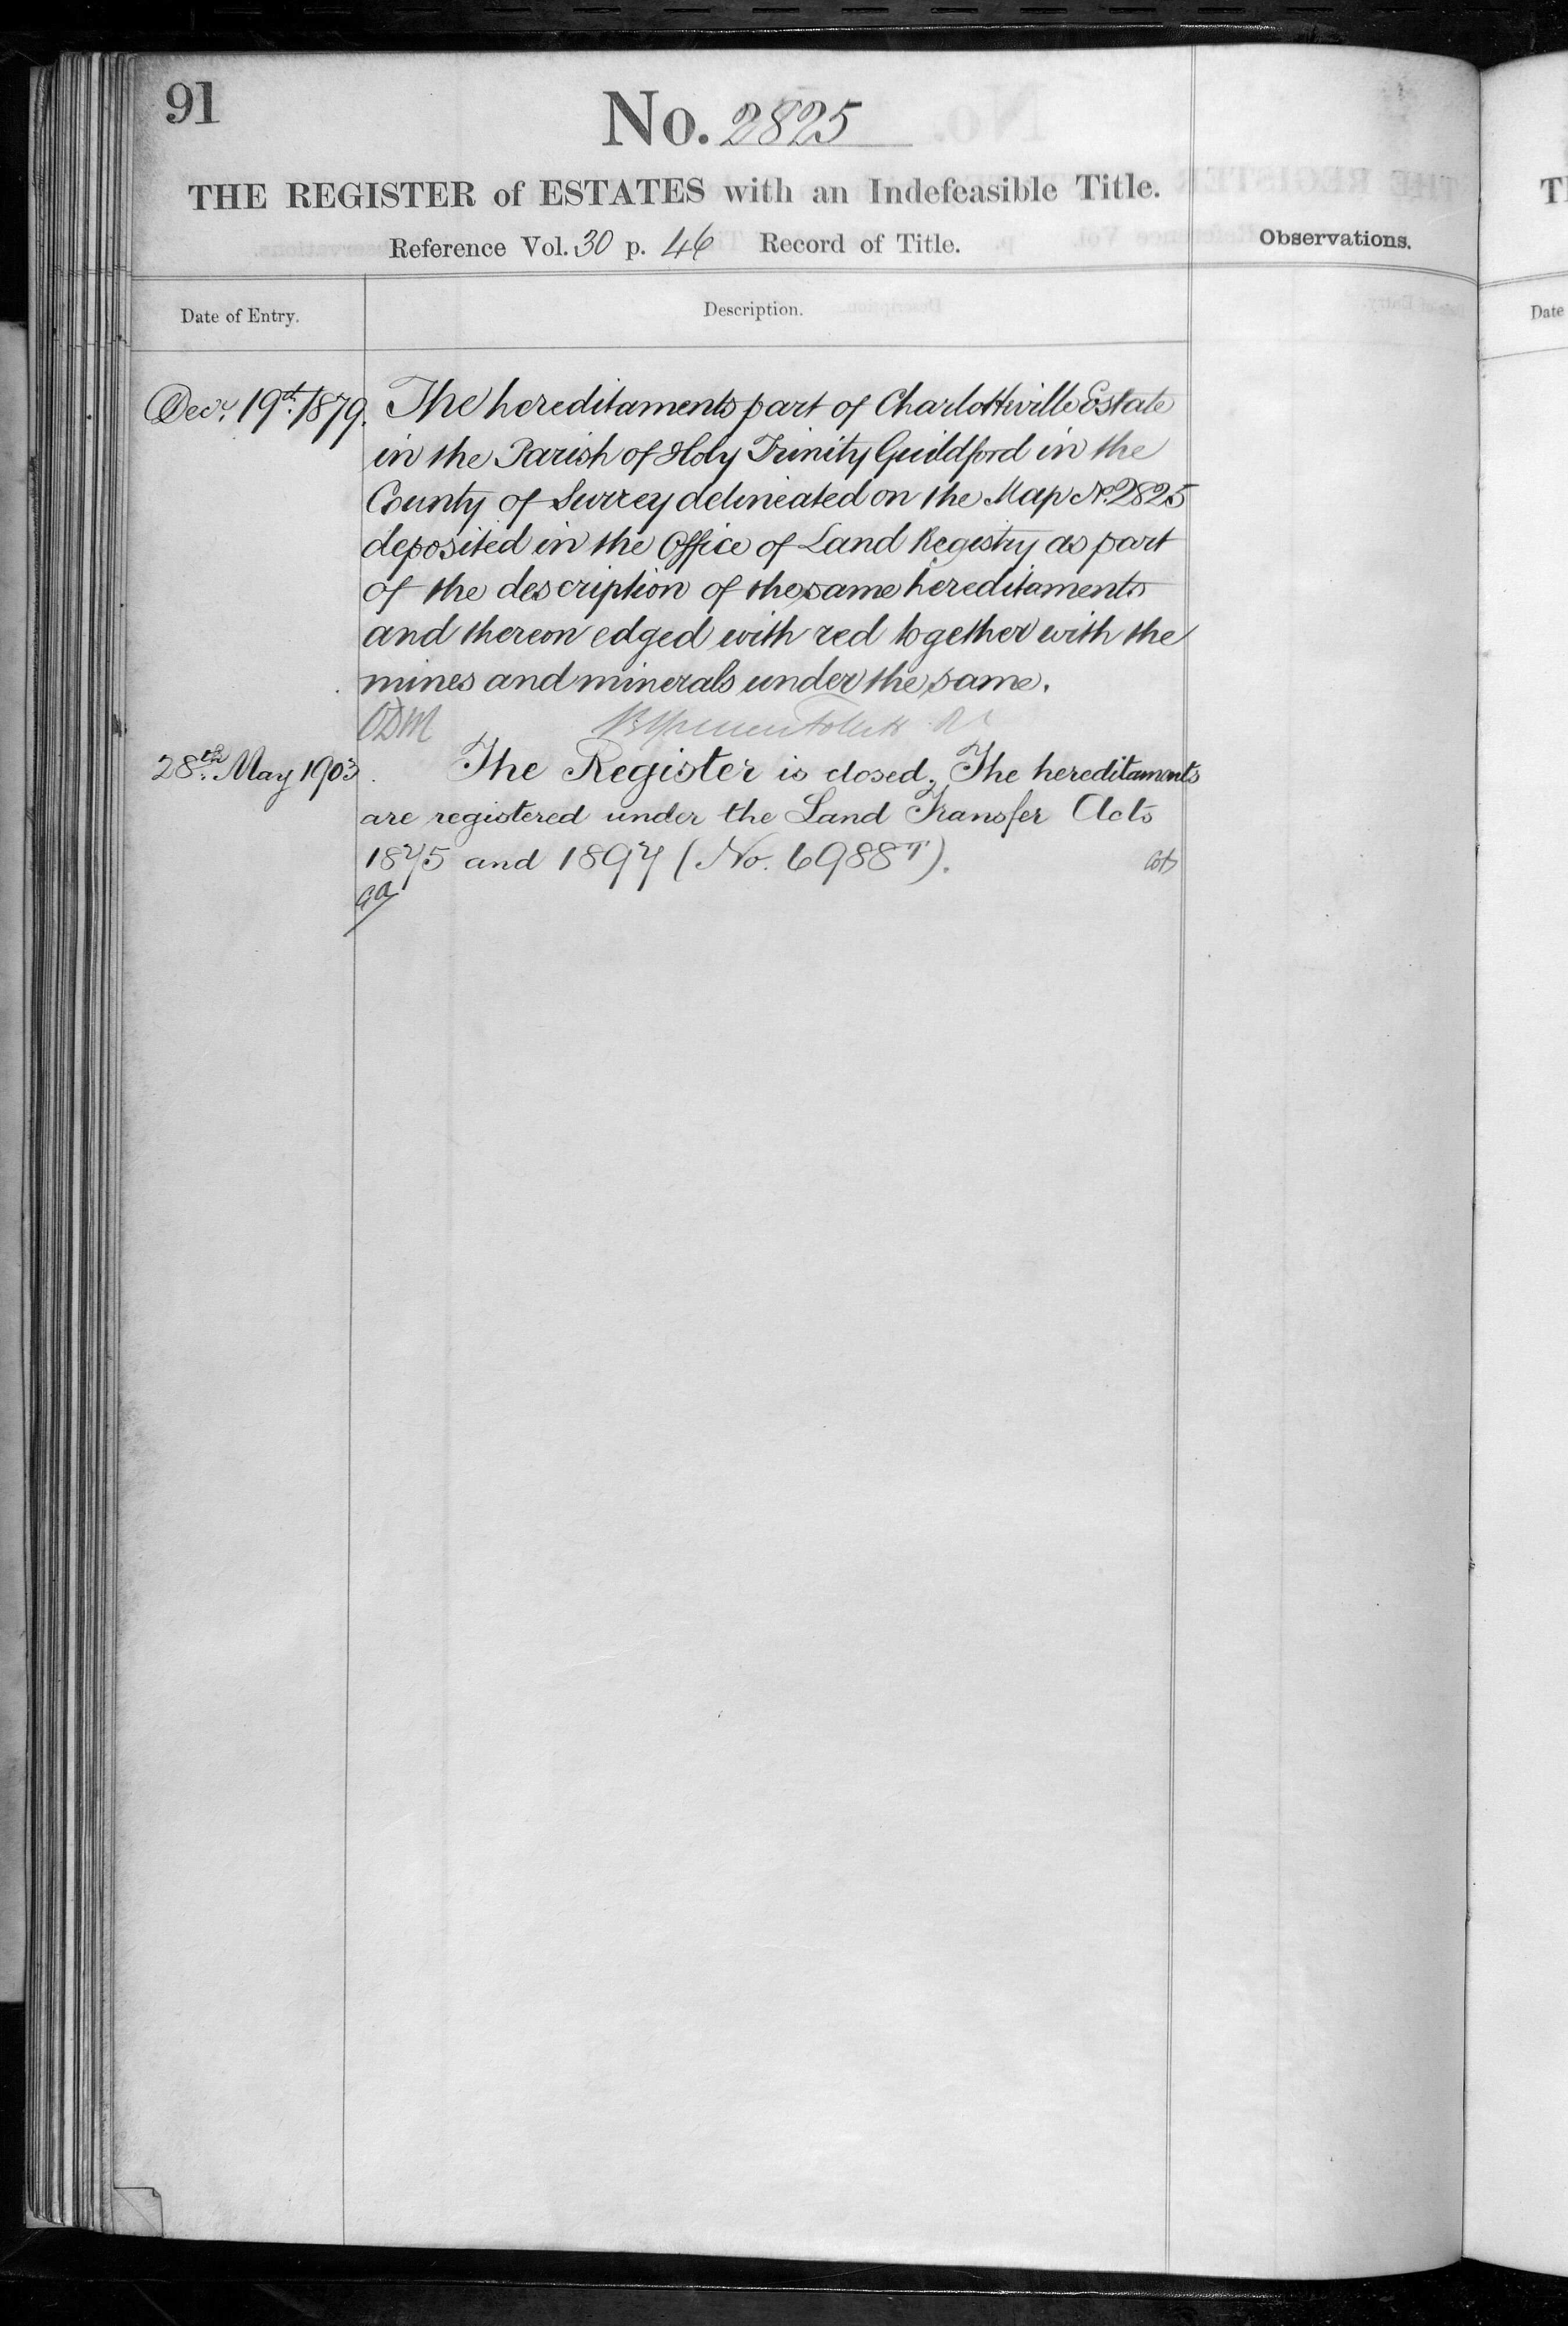 91
No. 2825
THE REGISTER of ESTATES with an Indefeasible Title.
Reference Vol. 30 p. 46 Record of Title.
Observations.
Date of Entry.
Description.
Decr. 19th. 1879. The hereditaments part of Charlotteville Estate
in the Parish of Holy Trinity Guildford in the
County of Surrey delineated on the Map No. 2825
deposited in the Office of Land Registry as part
of the description of the same hereditaments
and thereon edged with red together with the
mines and minerals under the same.
28th. May 1903. The Register is closed. The hereditaments
are registered under the Land Transfer Acts
1875 and 1897 (No. 6988T).
Date